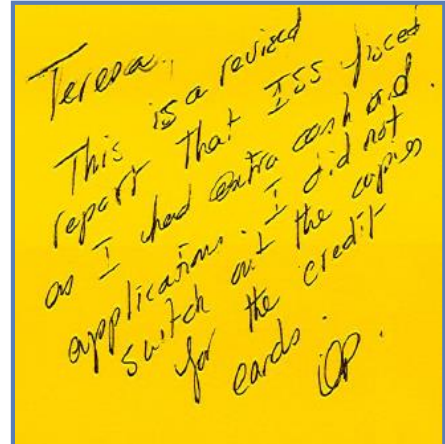 Teresa,
This is a revised
report that ISS faxed
as I had extra cash and
applications. I did not
switch out the copies
for the credit
cards.